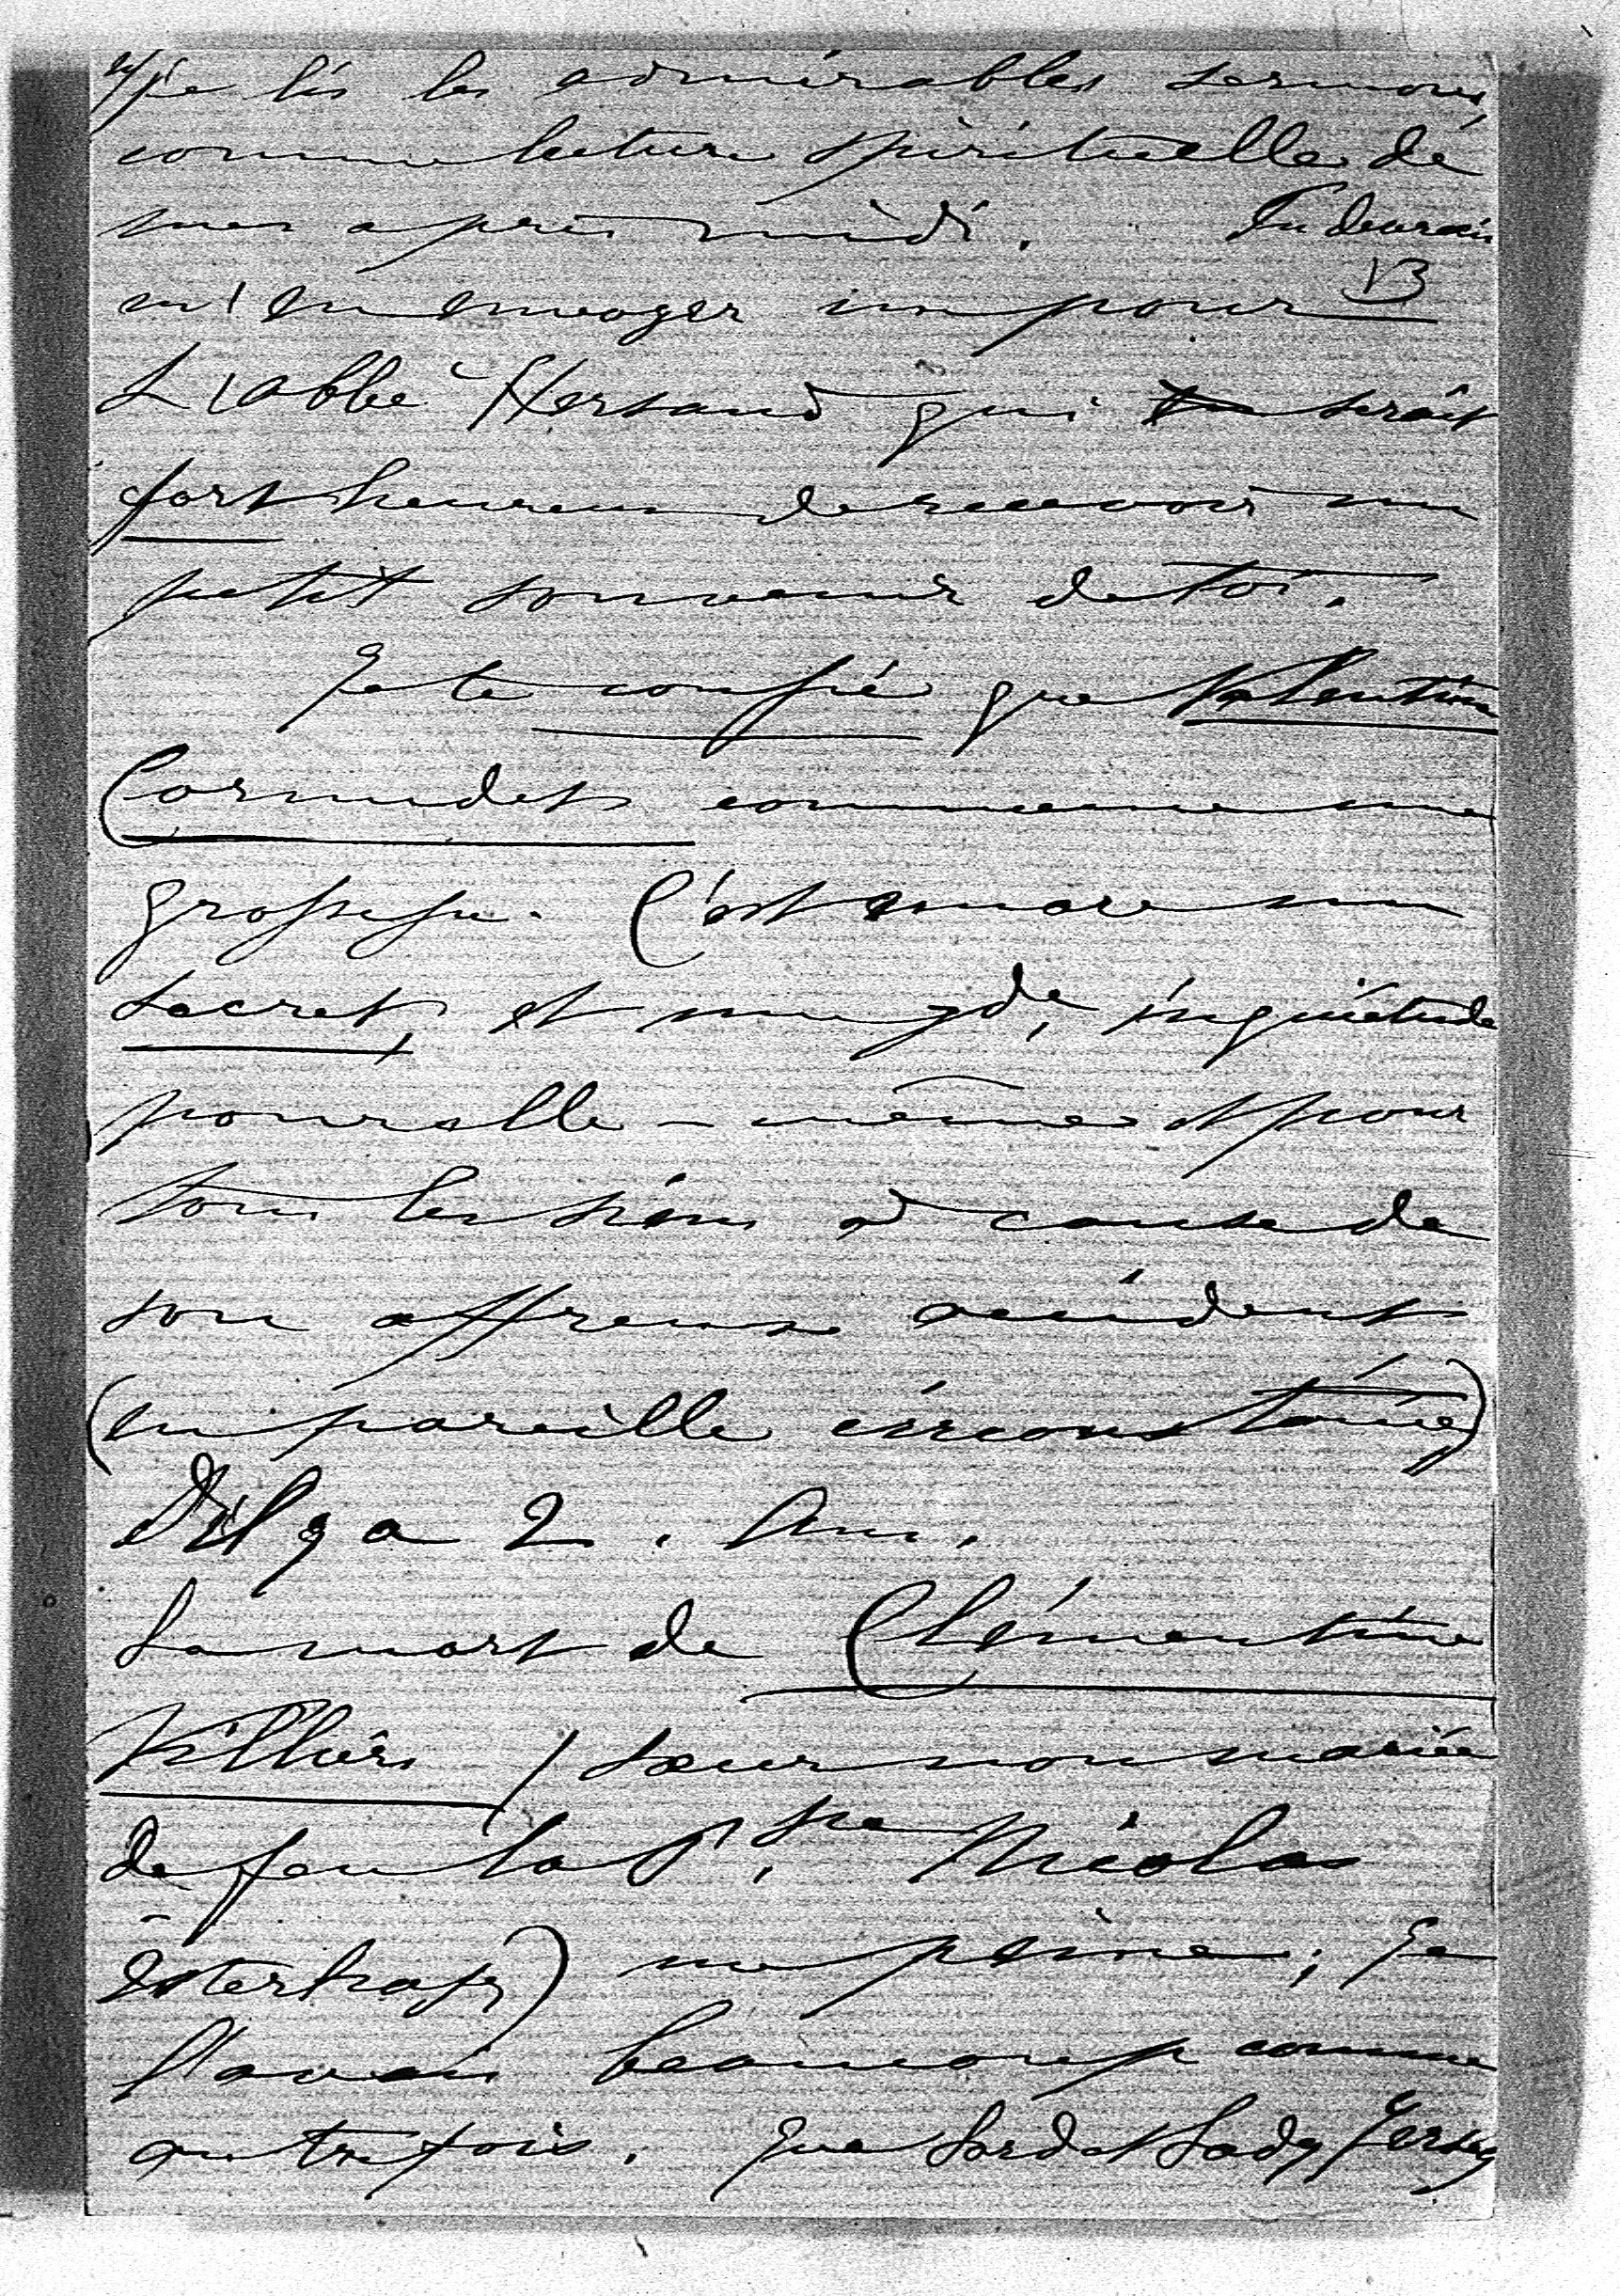 je lis les admirables sermons,
comme lecture spirituelle de
mes après midi. Tu devrais
m'en envoyer un pour
L'abbé Hersand qui serait
fort heureux de recevoir un
petit souvenir de toi.
Je te confie que Valentine
Cornudet commence une
grossesse. C'est encore un
secret, et une gde inquiétude
pour elle-même et pour
tous les siens à cause de
son affreux accident
(en pareille circonstance)
d'il y a 2. ans.
La mort de Clémentine
Villiers (sœur non mariée
de feu la P.sse Nicolas
Esterhazy) me peine; je
l'avais beaucoup connue
autrefois. Que Lord et Lady Jersey